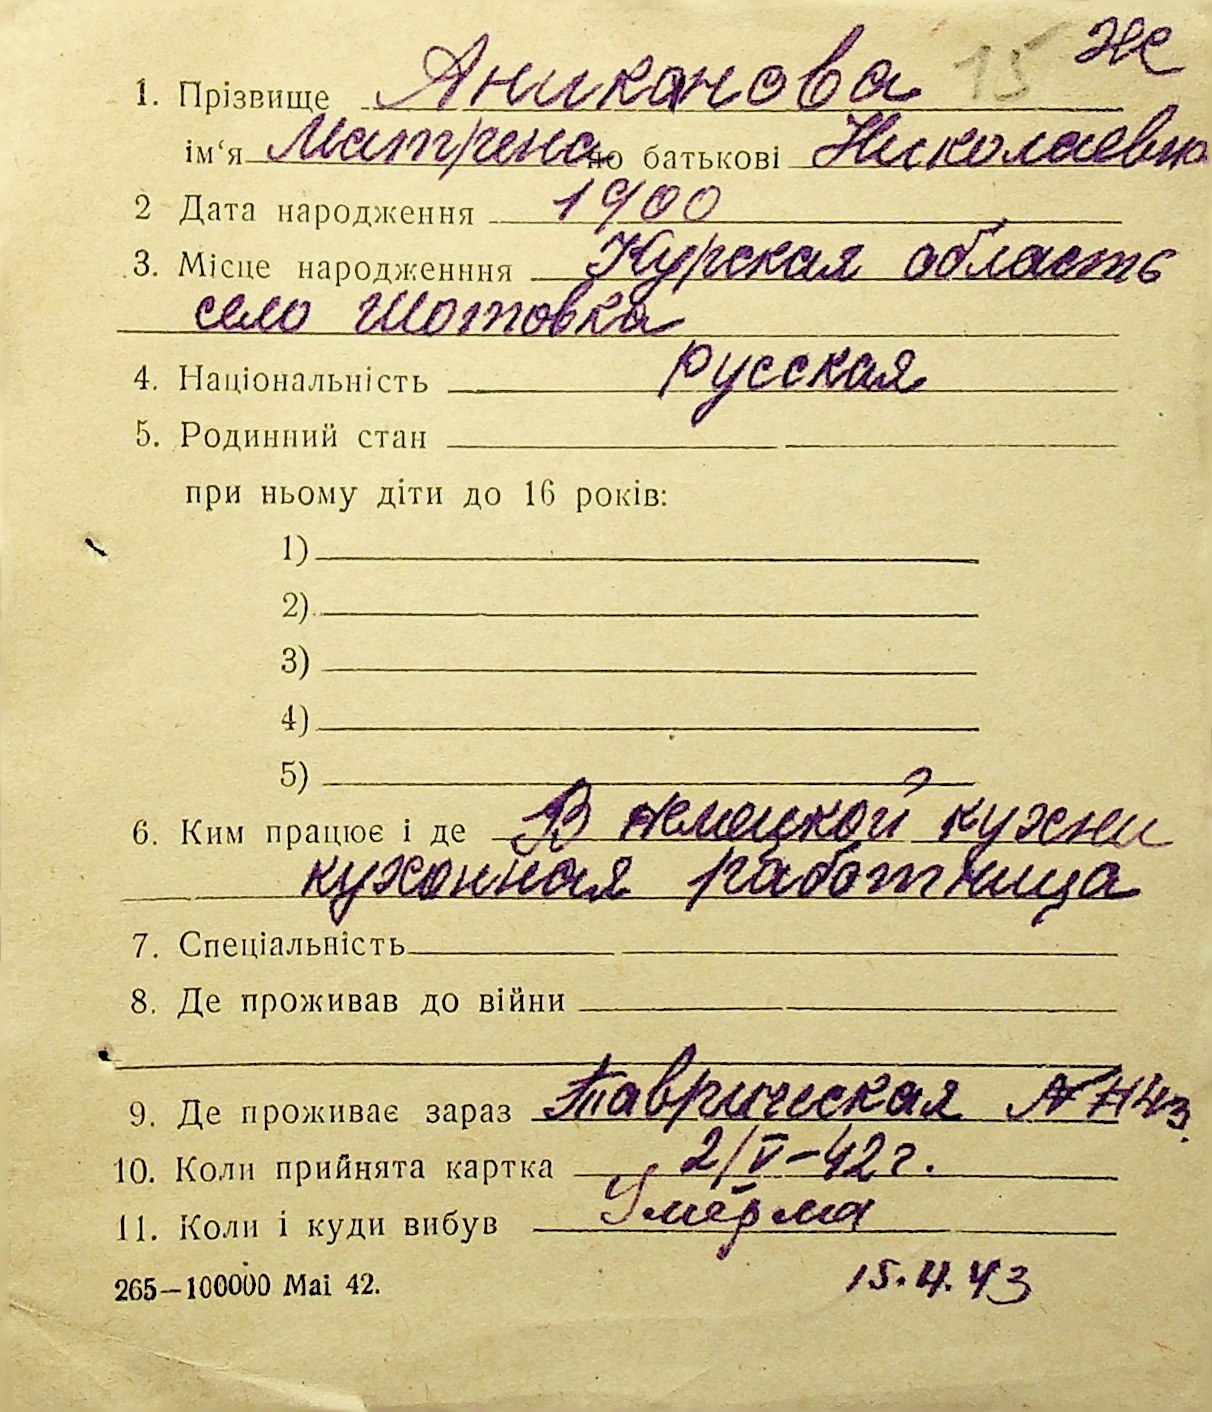 Ж
1. Прізвище Аниканова 15
ім‘я Матрена по батькові Николаевна
2 Дата народження 1900
3. Місце народженння Курская область
село Шотовка
4. Національність русская
5. Родинний стан
при ньому діти до 16 років:
1)
2)
3)
4)
5)
6. Ким працює і де В немецкой кухни
кухонная работница
7. Спеціальність
8. Де проживав до війни
9. Де проживає зараз Таврическая
10. Коли прийнята картка 2/V-42 г.
11. Коли і куди вибув Умерла
265—100000 Маі 42. 15.4.43